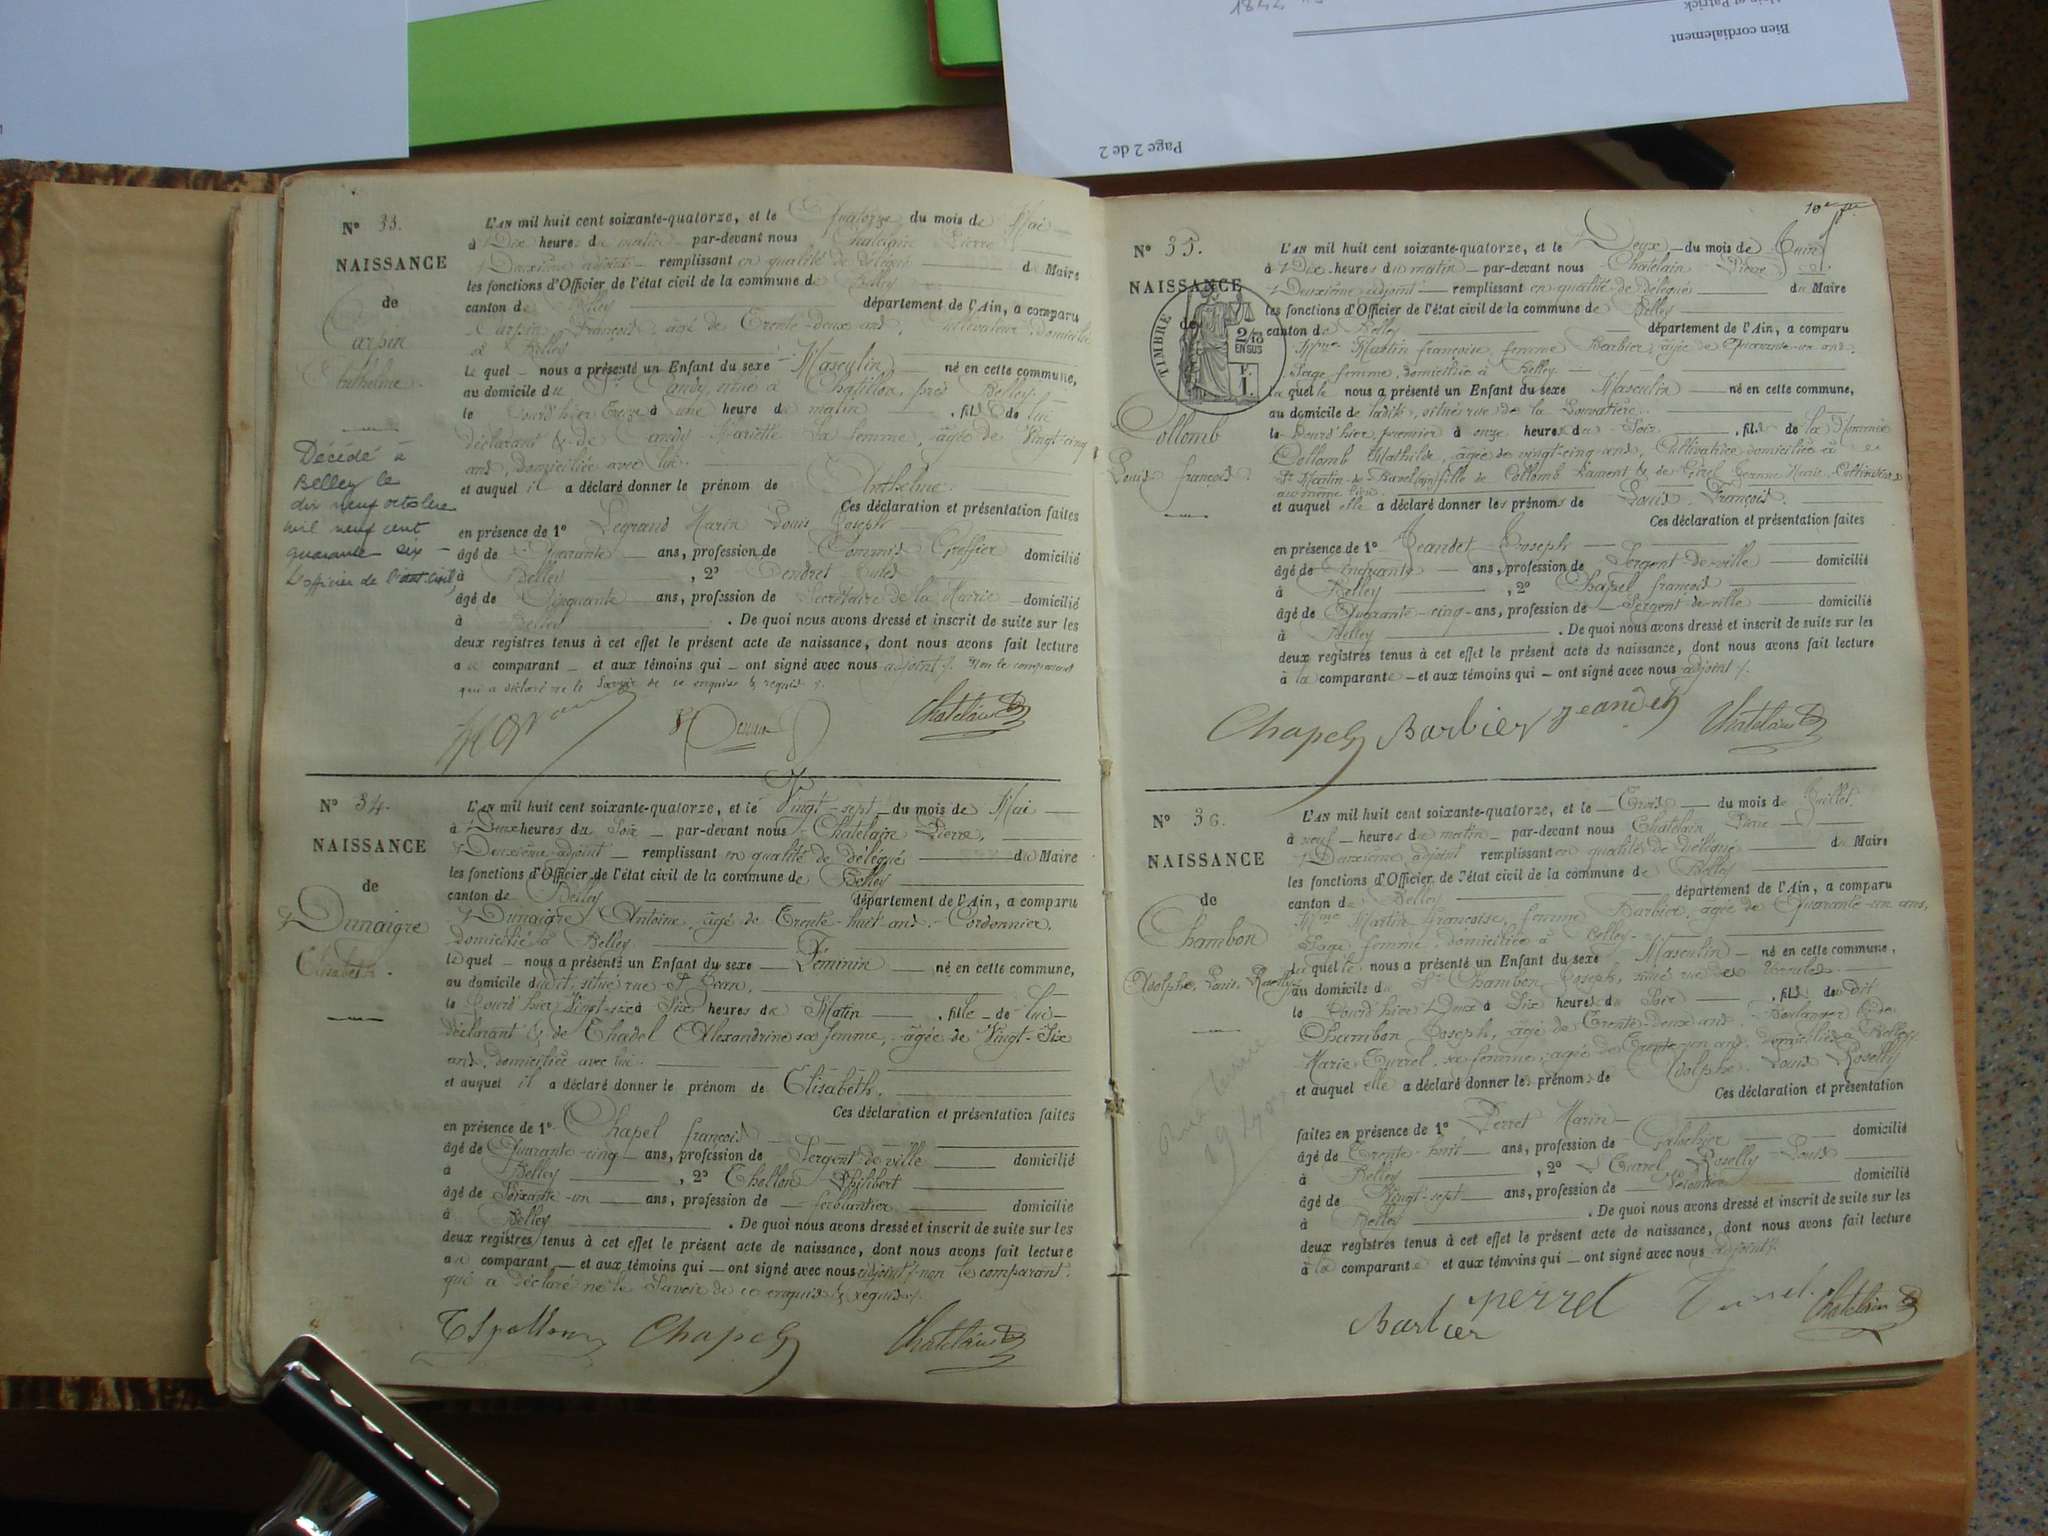 1844
Alain et Patrick
Bien cordialement
Page 2 de 2
N° 33.
NAISSANCE
de
Carpin
Anthelme.
Décédé à
Belley le
dix neuf octobre
mil neuf cent
quarante six
L'officier de l'état civil
L'AN mil huit cent soixante-quatorze, et le Quatorze du mois de Mai
à Dix heures du matin par-devant nous Chatelain Pierre
Deuxième adjoint remplissant en qualité de délégué du Maire
les fonctions d'Officier de l'état civil de la commune de Belley
canton de Belley département de l'Ain, a comparu
Carpin François, âgé de Trente-deux ans, Cultivateur, domicilié
à Belley
lequel nous a présenté un Enfant du sexe Masculin né en cette commune,
au domicile du Sr Candy, situé à Chatillon, près Belley.
le Jourd'hier Treize à une heure du matin , fils de lui
déclarant & de Candy Mariette sa femme, âgée de Vingt-cinq
ans, domiciliée avec lui.
et auquel il a déclaré donner le prénom de Anthelme
Ces déclaration et présentation faites
en présence de 1° Legrand Marin Louis Joseph
âgé de Quarante ans, profession de Commis Greffier domicilié
à Belley , 2° Dendret Jules
âgé de Cinquante ans, profession de Secrétaire de la Mairie domicilié
à Belley . De quoi nous avons dressé et inscrit de suite sur les
deux registres tenus à cet effet le présent acte de naissance, dont nous avons fait lecture
au comparant et aux témoins qui ont signé avec nous adjoint /. Non le comparant
qui a déclaré ne le Savoir de ce enquis & requis /.
Chatelain
N° 34.
NAISSANCE
de
Dunaigre
Elisabeth.
L'AN mil huit cent soixante-quatorze, et le Vingt-sept du mois de Mai
à Deux heures du Soir par-devant nous Chatelain Pierre,
Deuxième adjoint remplissant en qualité de délégué du Maire
les fonctions d'Officier de l'état civil de la commune de Belley
canton de Belley département de l'Ain, a comparu
Dunaigre Antoine, âgé de Trente-huit ans, Cordonnier,
domicilié à Belley
lequel nous a présenté un Enfant du sexe Féminin né en cette commune,
au domicile dudit, situé rue St Jean,
le Jourd'hier Vingt-six à Six heures du Matin , fille de lui
déclarant & de Thadel Alexandrine sa femme, âgée de Vingt-Six
ans, domiciliée avec lui.
et auquel il a déclaré donner le prénom de Elisabeth.
Ces déclaration et présentation faites
en présence de 1° Chapel françois
âgé de Quarante-cinq ans, profession de Sergent de ville domicilié
à Belley , 2° Thollon Philibert
âgé de Soixante-un ans, profession de ferblantier domicilié
à Belley . De quoi nous avons dressé et inscrit de suite sur les
deux registres tenus à cet effet le présent acte de naissance, dont nous avons fait lecture
au comparant et aux témoins qui ont signé avec nous adjoint /. non le comparant
qui a déclaré ne le Savoir de ce enquis & requis /.
Chapel Chatelain
10e
N° 35.
NAISSANCE
de
TIMBRE
2/10
EN SUS
F.
1.
Collomb
Louis françois
L'AN mil huit cent soixante-quatorze, et le Deux du mois de Juin
à Dix heures du matin par-devant nous Chatelain Pierre
Deuxième adjoint remplissant en qualité de délégué du Maire
les fonctions d'Officier de l'état civil de la commune de Belley
canton de Belley département de l'Ain, a comparu
Mme Martin françoise, femme Barbier, âgée de Quarante-un ans,
Sage femme, domiciliée à Belley.
laquelle nous a présenté un Enfant du sexe Masculin né en cette commune,
au domicile de ladite, située rue de la Louvatière.
le Jourd'hier, premier à onze heures du Soir , fils de la Nommée
Collomb Mathilde, agée de vingt-cinq ans, Cultivatrice domiciliée à
St Martin de Bavel (ain) fille de Collomb Rament & de Tirel Jeanne Marie, Cultivateurs
au même lieu
et auquel elle a déclaré donner les prénoms de Louis, François
Ces déclaration et présentation faites
en présence de 1° Jeandet Joseph
âgé de Cinquante ans, profession de Sergent de ville domicilié
à Belley , 2° Chapel françois
âgé de Quarante-cinq ans, profession de Sergent de ville domicilié
à Belley . De quoi nous avons dressé et inscrit de suite sur les
deux registres tenus à cet effet le présent acte de naissance, dont nous avons fait lecture
à la comparante et aux témoins qui ont signé avec nous adjoint /.
Chapel Barbier Jeandet Chatelain
N° 36.
NAISSANCE
de
Chambon
Adolphe, Louis, Roselly
L'AN mil huit cent soixante-quatorze, et le Trois du mois de Juillet
à neuf heures du matin par-devant nous Chatelain Pierre
Deuxième adjoint remplissant en qualité de délégué du Maire
les fonctions d'Officier de l'état civil de la commune de Belley
canton de Belley département de l'Ain, a comparu
Mme Martin françoise, femme Barbier, agée de Quarante-un ans,
Sage femme, domiciliée à Belley.
laquelle nous a présenté un Enfant du sexe Masculin né en cette commune,
au domicile du Sr Chambon Joseph, situé rue des
le Jourd'hier Deux à Six heures du Soir , fils dudit
Chambon Joseph, agé de Trente-deux ans, Boulanger & de
Marie Turrel, sa femme, agée de Trente-un ans, domiciliés à Belley
et auquel elle a déclaré donner les prénoms de Adolphe, Louis, Roselly
Ces déclaration et présentation
faites en présence de 1° Perret Marin
âgé de Trente-huit ans, profession de Galochier domicilié
à Belley , 2° Turrel Roselly Louis
âgé de Vingt-sept ans, profession de domicilié
à Belley . De quoi nous avons dressé et inscrit de suite sur les
deux registres tenus à cet effet le présent acte de naissance, dont nous avons fait lecture
à la comparante et aux témoins qui ont signé avec nous adjoint /.
Barbier perret Turrel Chatelain